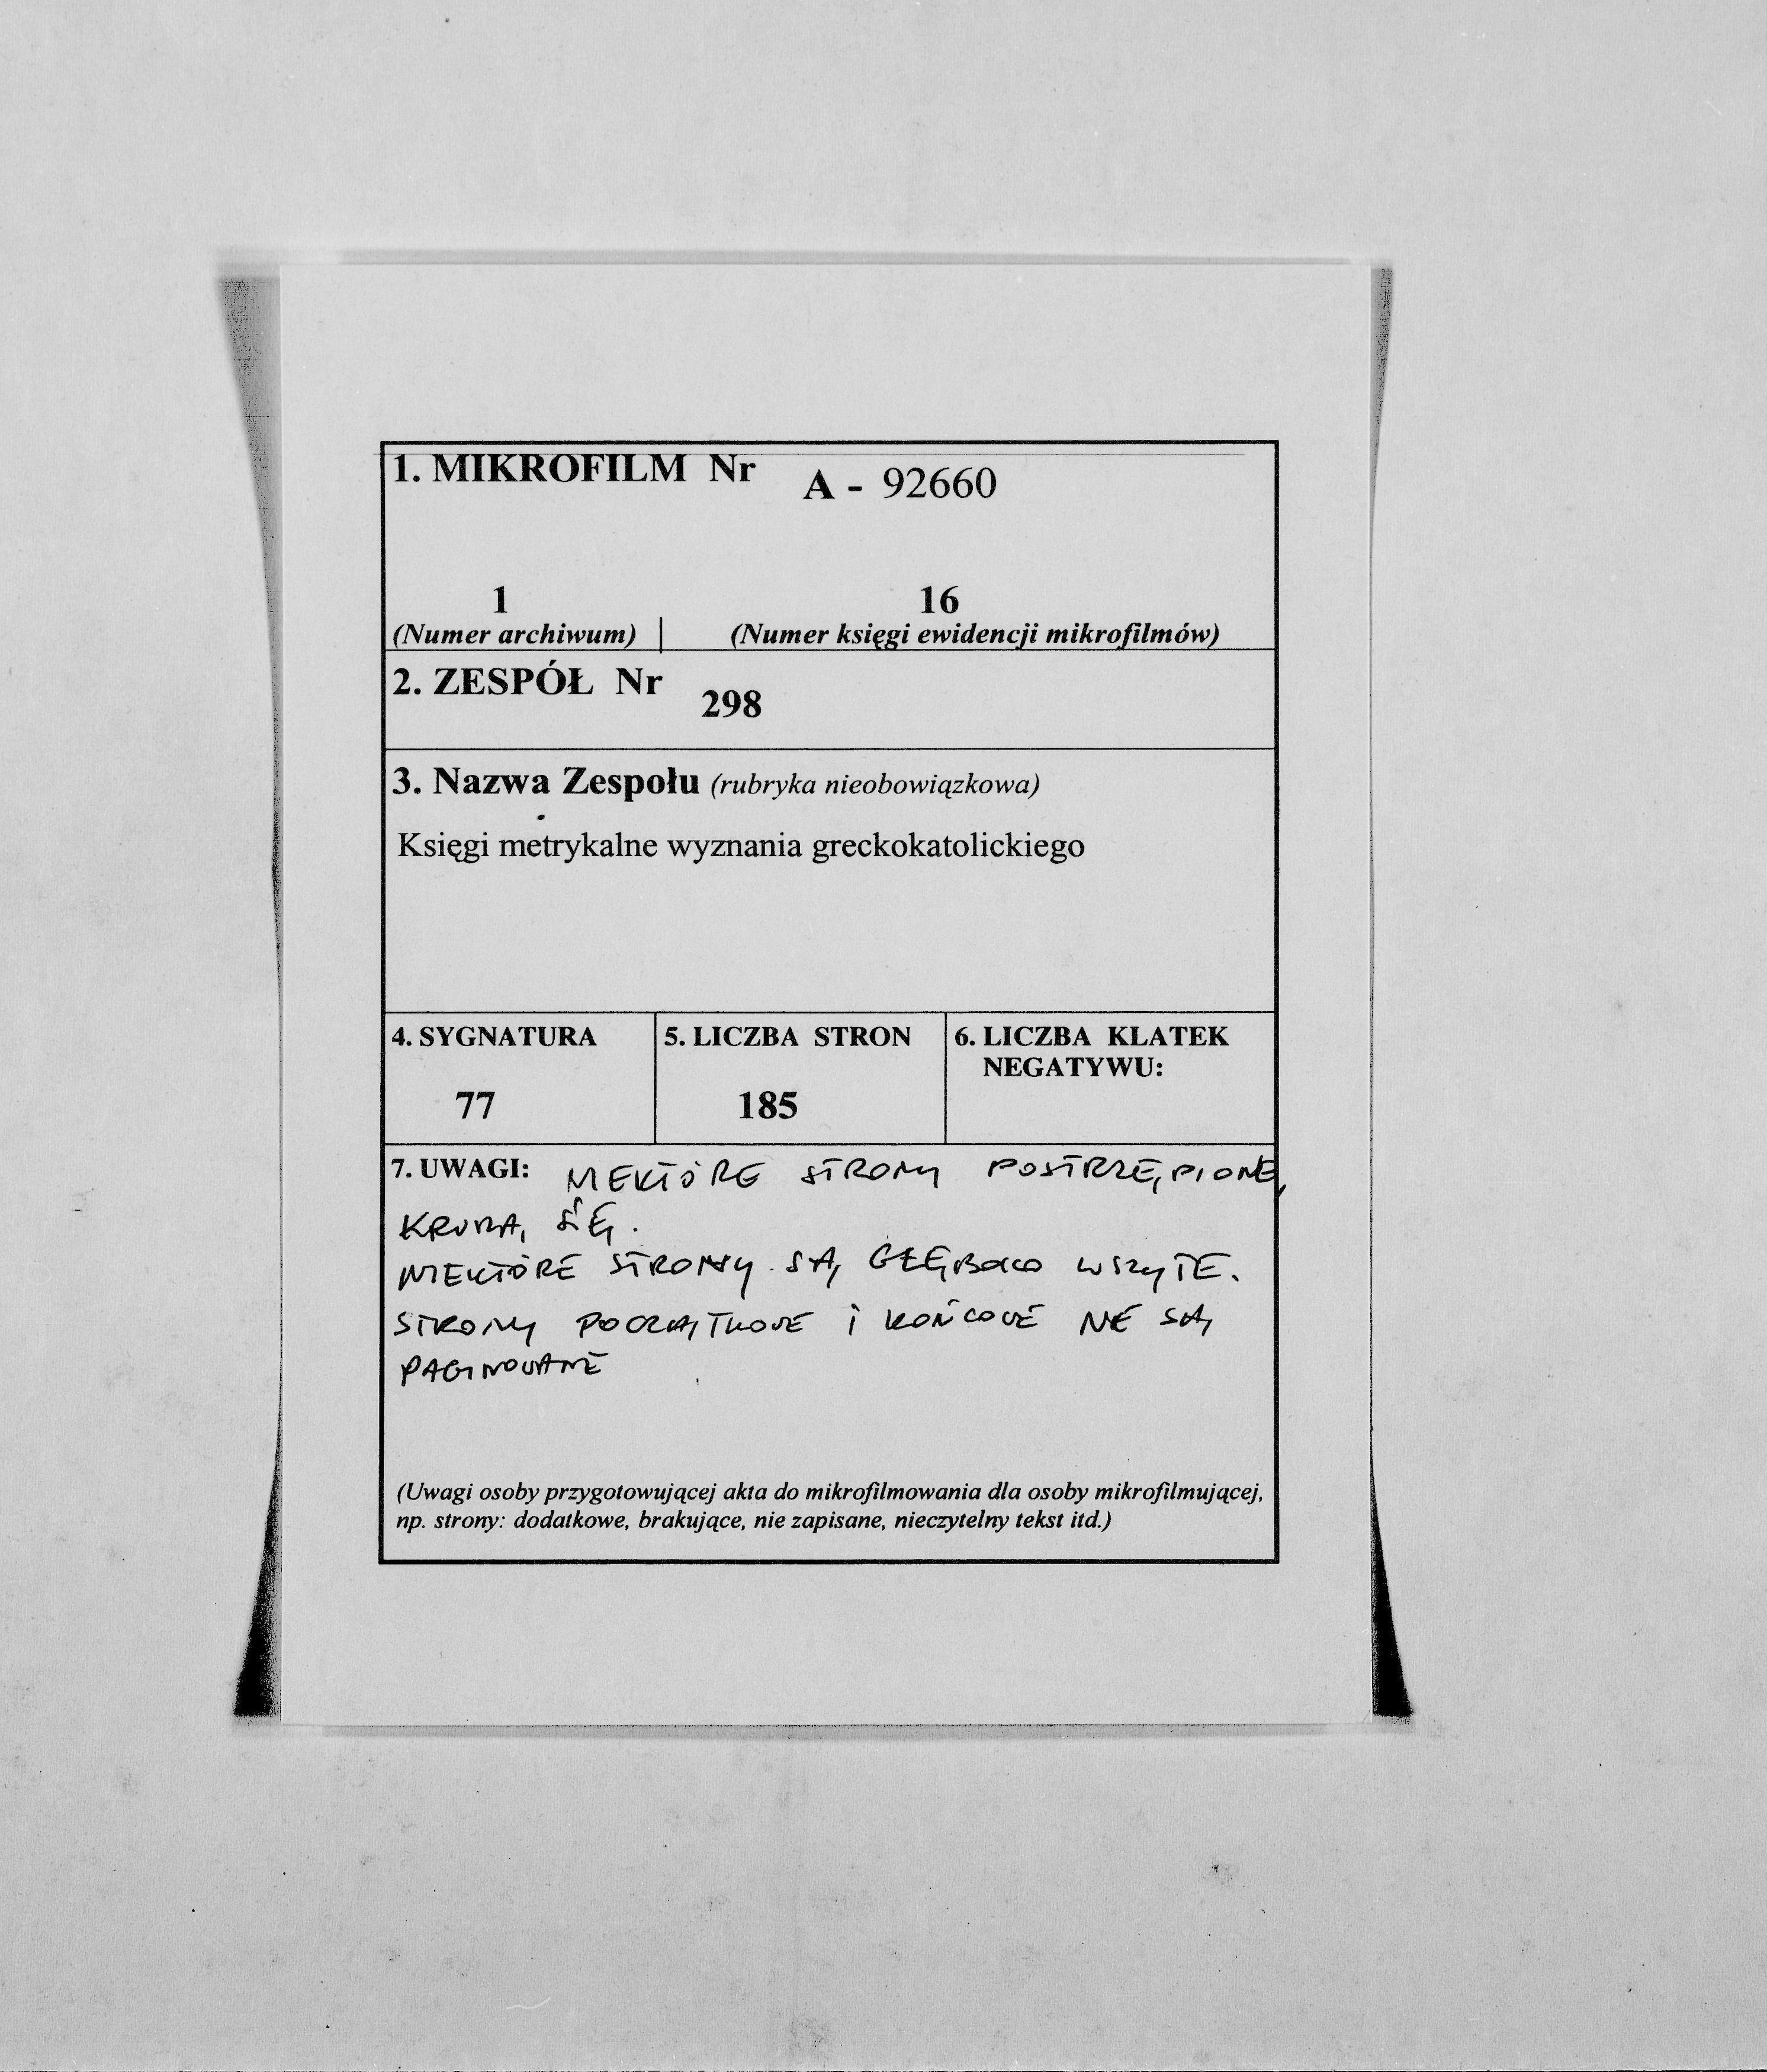 1. MIKROFILM Nr A - 92660
1 16
(Numer archiwum) | (Numer księgi ewidencji mikrofilmów)
2. ZESPÓŁ Nr 298
3. Nazwa Zespołu (rubryka nieobowiązkowa)
Księgi metrykalne wyznania greckokatolickiego
4. SYGNATURA 5. LICZBA STRON 6. LICZBA KLATEK
NEGATYWU:
77 185
7. UWAGI: NIEKTÓRE STRONY POSTRZĘPIONE,
KRUSZĄ SIĘ.
NIEKTÓRE STRONY SĄ GŁĘBOKO WSZYTE.
STRONY POCZĄTKOWE i KOŃCOWE NIE SĄ
PAGINOWANE
(Uwagi osoby przygotowującej akta do mikrofilmowania dla osoby mikrofilmującej,
np. strony: dodatkowe, brakujące, nie zapisane, nieczytelny tekst itd.)